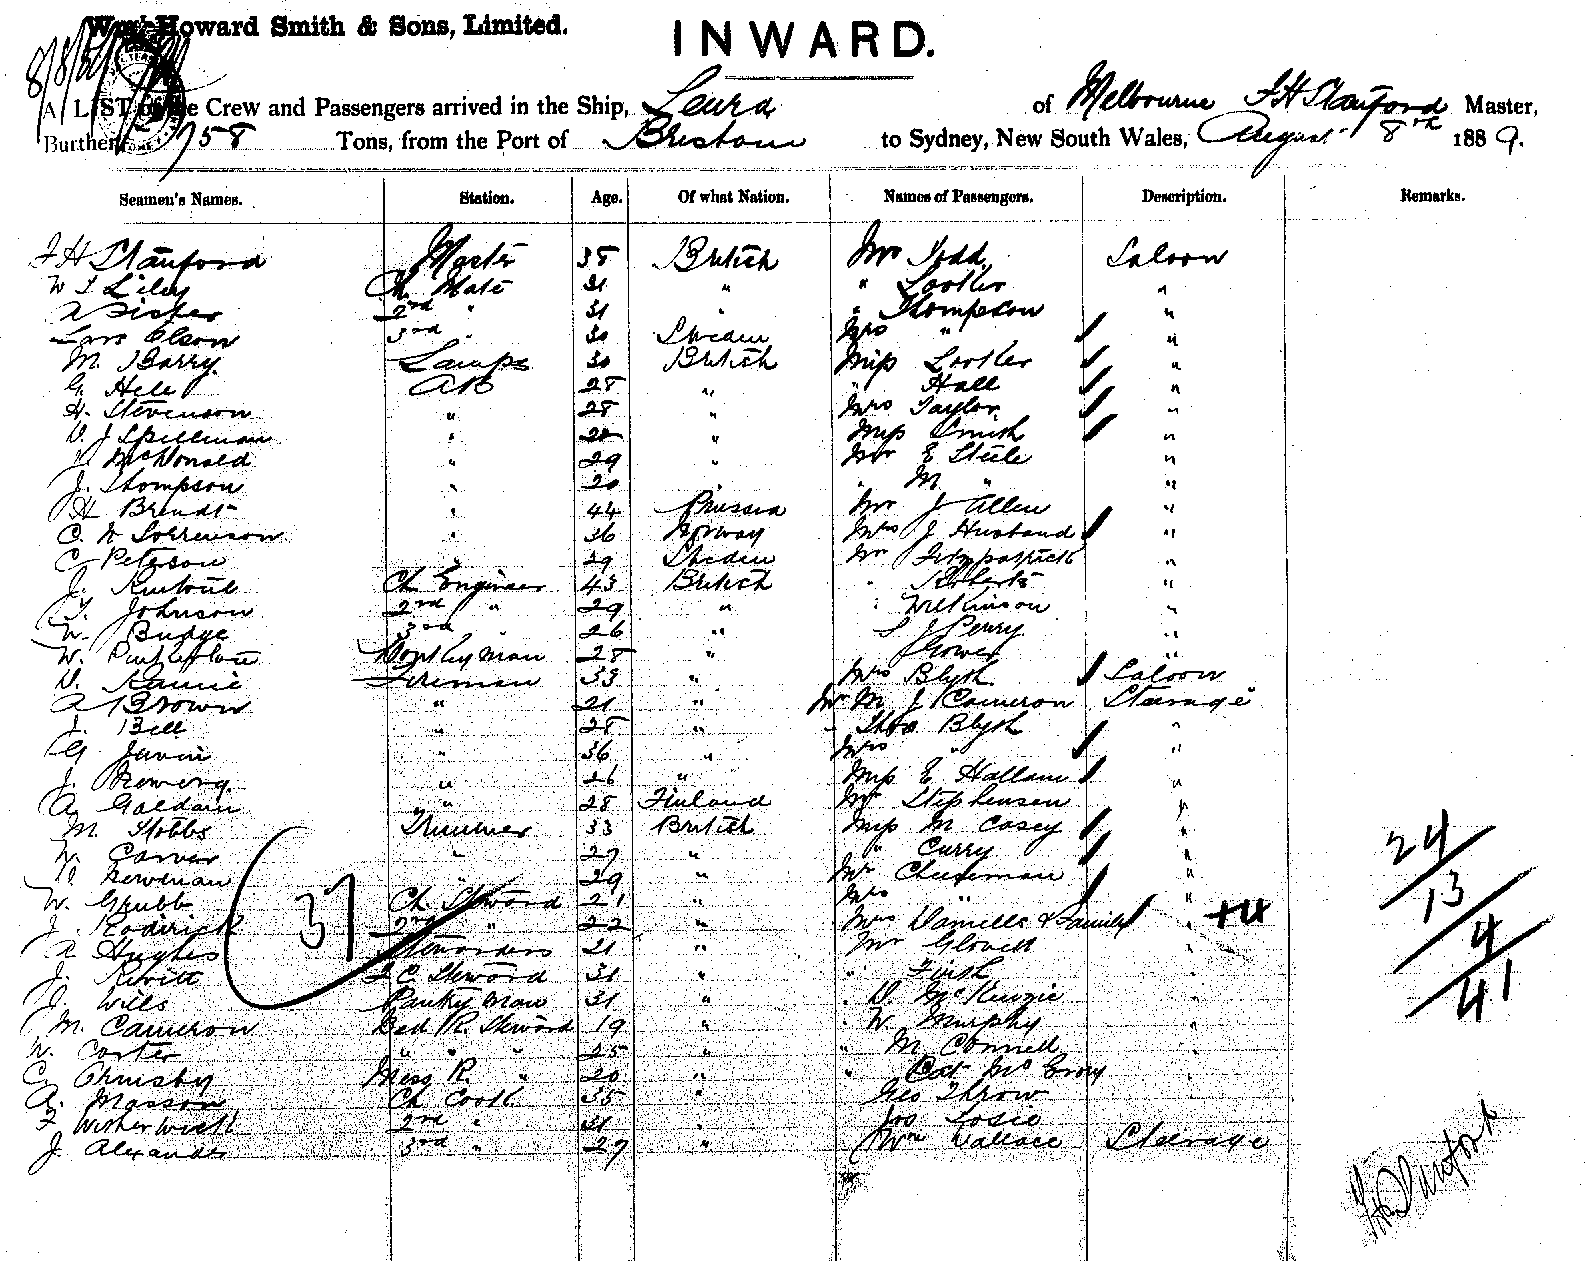 Wm. Howard Smith & Sons, Limited.
INWARD.
8/8/89
A LIST of the Crew and Passengers arrived in the Ship, Leura of Melbourne F H Stanford Master,
Burthen 758 Tons, from the Port of Brisbane to Sydney, New South Wales, August 8th 1889.
Seamen's Names. Station. Age. Of what Nation. Names of Passengers. Description. Remarks.
F H Stanford Master 38 British Mr Todd Saloon
Ch Mate 31 " " "
2nd " 31 " " Thompson "
Lars Olson 3rd " 30 Sweden Mrs " "
M. Barry Lamps 30 British Miss "
G. Hele AB 28 " " Hall "
H. Stevenson " 28 " Mrs Taylor "
D. J Spillman " " Miss Smith "
J. McDonald " 29 " Mr E Steele "
J. Thompson " 20 " " M. " "
H Brendt " 44 Prussia Mr J Allen "
C. W Sorrenson " 36 Norway Mrs J Husband "
C Peterson " 29 Sweden Mr Fitzpatrick "
J. Ch Engineer 43 British " Roberts "
T. Johnson 2nd " 29 " " Wilkinson "
W. Budge 3rd " 26 " S J Perry "
W. Donkeyman 28 " Gower "
D. Rannie Fireman 33 " Mrs Blyth Saloon
A Brown " 21 " Mr M J Cameron Steerage
J. Bell " 28 " " Thos Blyth "
G. " 36 " Mrs " "
J. " 26 " Miss E Hallam "
A. " 28 Finland Mr Stephensen "
M. Hobbs Trimmer 33 British Miss M Casey "
W. Carver " 27 " " Curry "
" 29 " Mr "
W. Grubb Ch Steward 21 " Mrs " "
J. Rodirick 2nd " 22 " Mrs Daniells & Family " +4
A Hughes Stewardess 21 " Mr "
J. F.C. Steward 31 " " "
D. Wills Pantryman 31 " " D McKenzie
M. Cameron Bed R. Steward 19 " " W Murphy "
W. Carter " " " 25 " " M Connell "
C. Ormsby Mess R. " 20 " " "
A. Masson Ch Cook 35 " Geo Throw "
F 2nd " 31 " Jos "
J. Alexander 3rd " 27 " Wm Wallace Steerage
37
24
13
4
41
F H Stanford